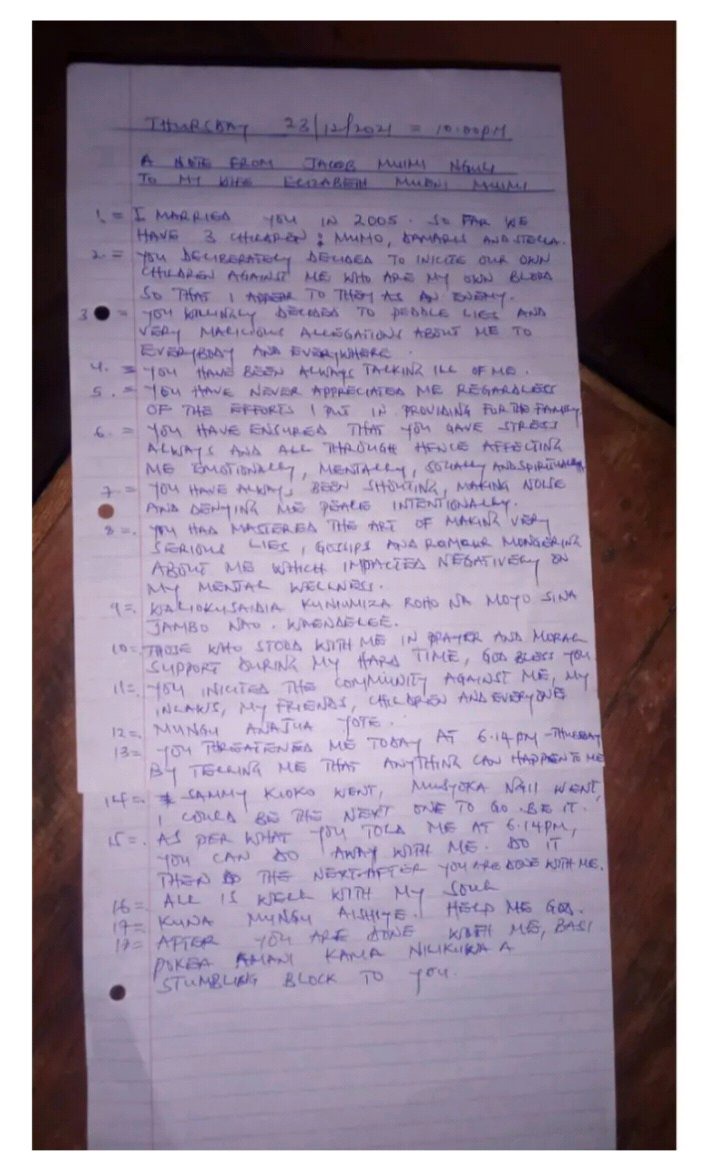 THURSDAY 23/12/2021 = 10:00PM
A NOTE FROM JACOB MUIMI NGULI
TO MY WIFE ELIZABETH MUENI MUIMI
1. = I MARRIED YOU IN 2005. SO FAR WE
HAVE 3 CHILDREN; MUMO, DAMARIS AND STELLA.
2. = YOU DELIBERATELY DECIDED TO INICITE OUR OWN
CHILDREN AGAINST ME WHO ARE MY OWN BLOOD
SO THAT I APPEAR TO THEM AS AN ENEMY.
3 = YOU WILLINGLY DECIDED TO PEDDLE LIES AND
VERY MALICIOUS ALLEGATIONS ABOUT ME TO
EVERYBODY AND EVERYWHERE.
4. = YOU HAVE BEEN ALWAYS TALKING ILL OF ME.
5. = YOU HAVE NEVER APPRECIATED ME REGARDLESS
OF THE EFFORTS I PUT IN PROVIDING FOR THE FAMILY.
6. = YOU HAVE ENSURED THAT YOU GAVE STRESS
ALWAYS AND ALL THROUGH HENCE AFFECTING
ME EMOTIONALLY, MENTALLY, SOCIALLY AND SPIRITUALLY
7 = YOU HAVE ALWAYS BEEN SHOUTING, MAKING NOISE
AND DENYING ME PEACE INTENTIONALLY.
8 =. YOU HAD MASTERED THE ART OF MAKING VERY
SERIOUS LIES, GOSSIPS AND ROMOUR MONGERING
ABOUT ME WHICH IMPACTED NEGATIVELY ON
MY MENTAL WELLNESS.
9 =. WALIOKUSAIDIA KUNIUMIZA ROHO NA MOYO SINA
JAMBO NAO. WAENDELEE.
10 =. THOSE WHO STOOD WITH ME IN PRAYER AND MORAL
SUPPORT DURING MY HARD TIME, GOD BLESS YOU
11 =. YOU INICITED THE COMMUNITY AGAINST ME, MY
INLAWS, MY FRIENDS, CHILDREN AND EVERYONE
12 =. MUNGU ANAJUA YOTE.
13 = YOU THREATENED ME TODAY AT 6.14PM - THURSDAY
BY TELLING ME THAT ANYTHING CAN HAPPEN TO ME
14 =. SAMMY KIOKO WENT, MUSYOKA NGII WENT,
I COULD BE THE NEXT ONE TO GO. BE IT.
15 =. AS PER WHAT YOU TOLD ME AT 6.14PM,
YOU CAN DO AWAY WITH ME. DO IT
THEN DO THE NEXT AFTER YOU ARE DONE WITH ME.
16 = ALL IS WELL WITH MY SOUL
17 = KUNA MUNGU AISHIYE. HELP ME GOD.
18 = AFTER YOU ARE DONE WITH ME, BASI
POKEA AMANI KAMA NILIKUWA A
STUMBLING BLOCK TO YOU.